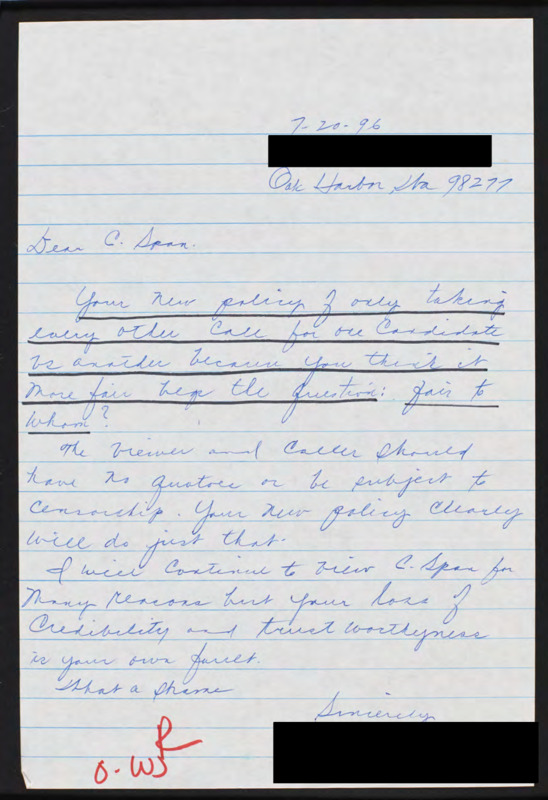 7-20-96
Oak Harbor, Wa 98277
Dear C. Span.
Your new policy of only taking
every other Call for one Candidate
vs another because you think it
more fair begs the question: fair to
whom?
The viewer and Caller should
have no quotas or be subject to
Censorship. Your new policy Clearly
will do just that.
I will Continue to view C. Span for
Many reasons but your loss of
Credibility and trust worthyness
is your own fault.
What a shame
Sincerely
R
O-W